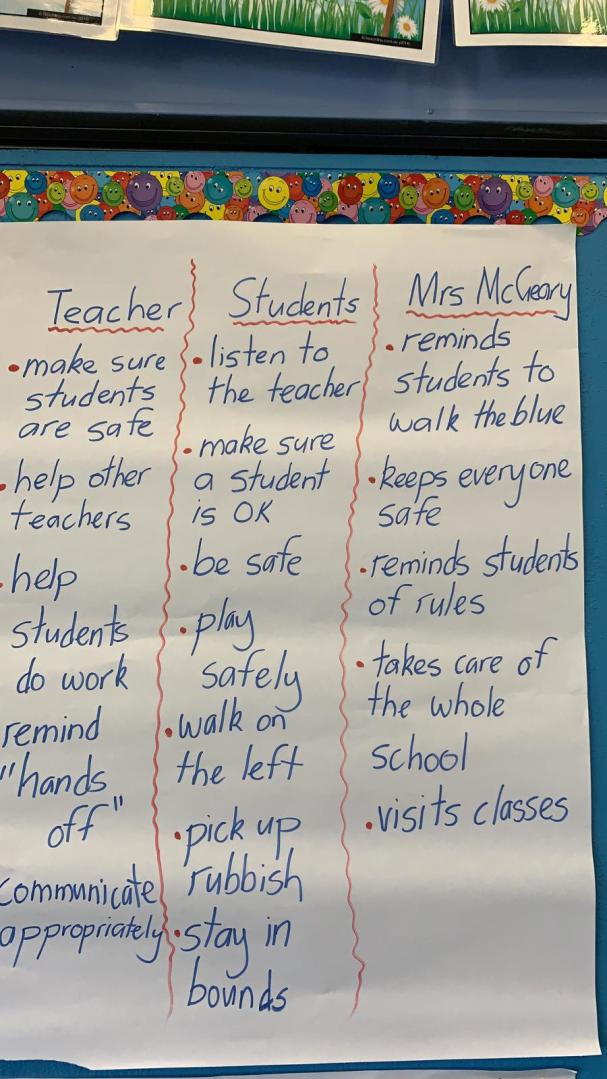 Teacher
• make sure
students
are safe
• help other
teachers
• help
students
do work
remind
"hands
off"
communicate
appropriately
Students
• listen to
the teacher
• make sure
a student
is OK
• be safe
• play
safely
• walk on
the left
• pick up
rubbish
• stay in
bounds
Mrs McGeary
• reminds
students to
walk the blue
• keeps everyone
safe
• reminds students
of rules
• takes care of
the whole
school
• visits classes